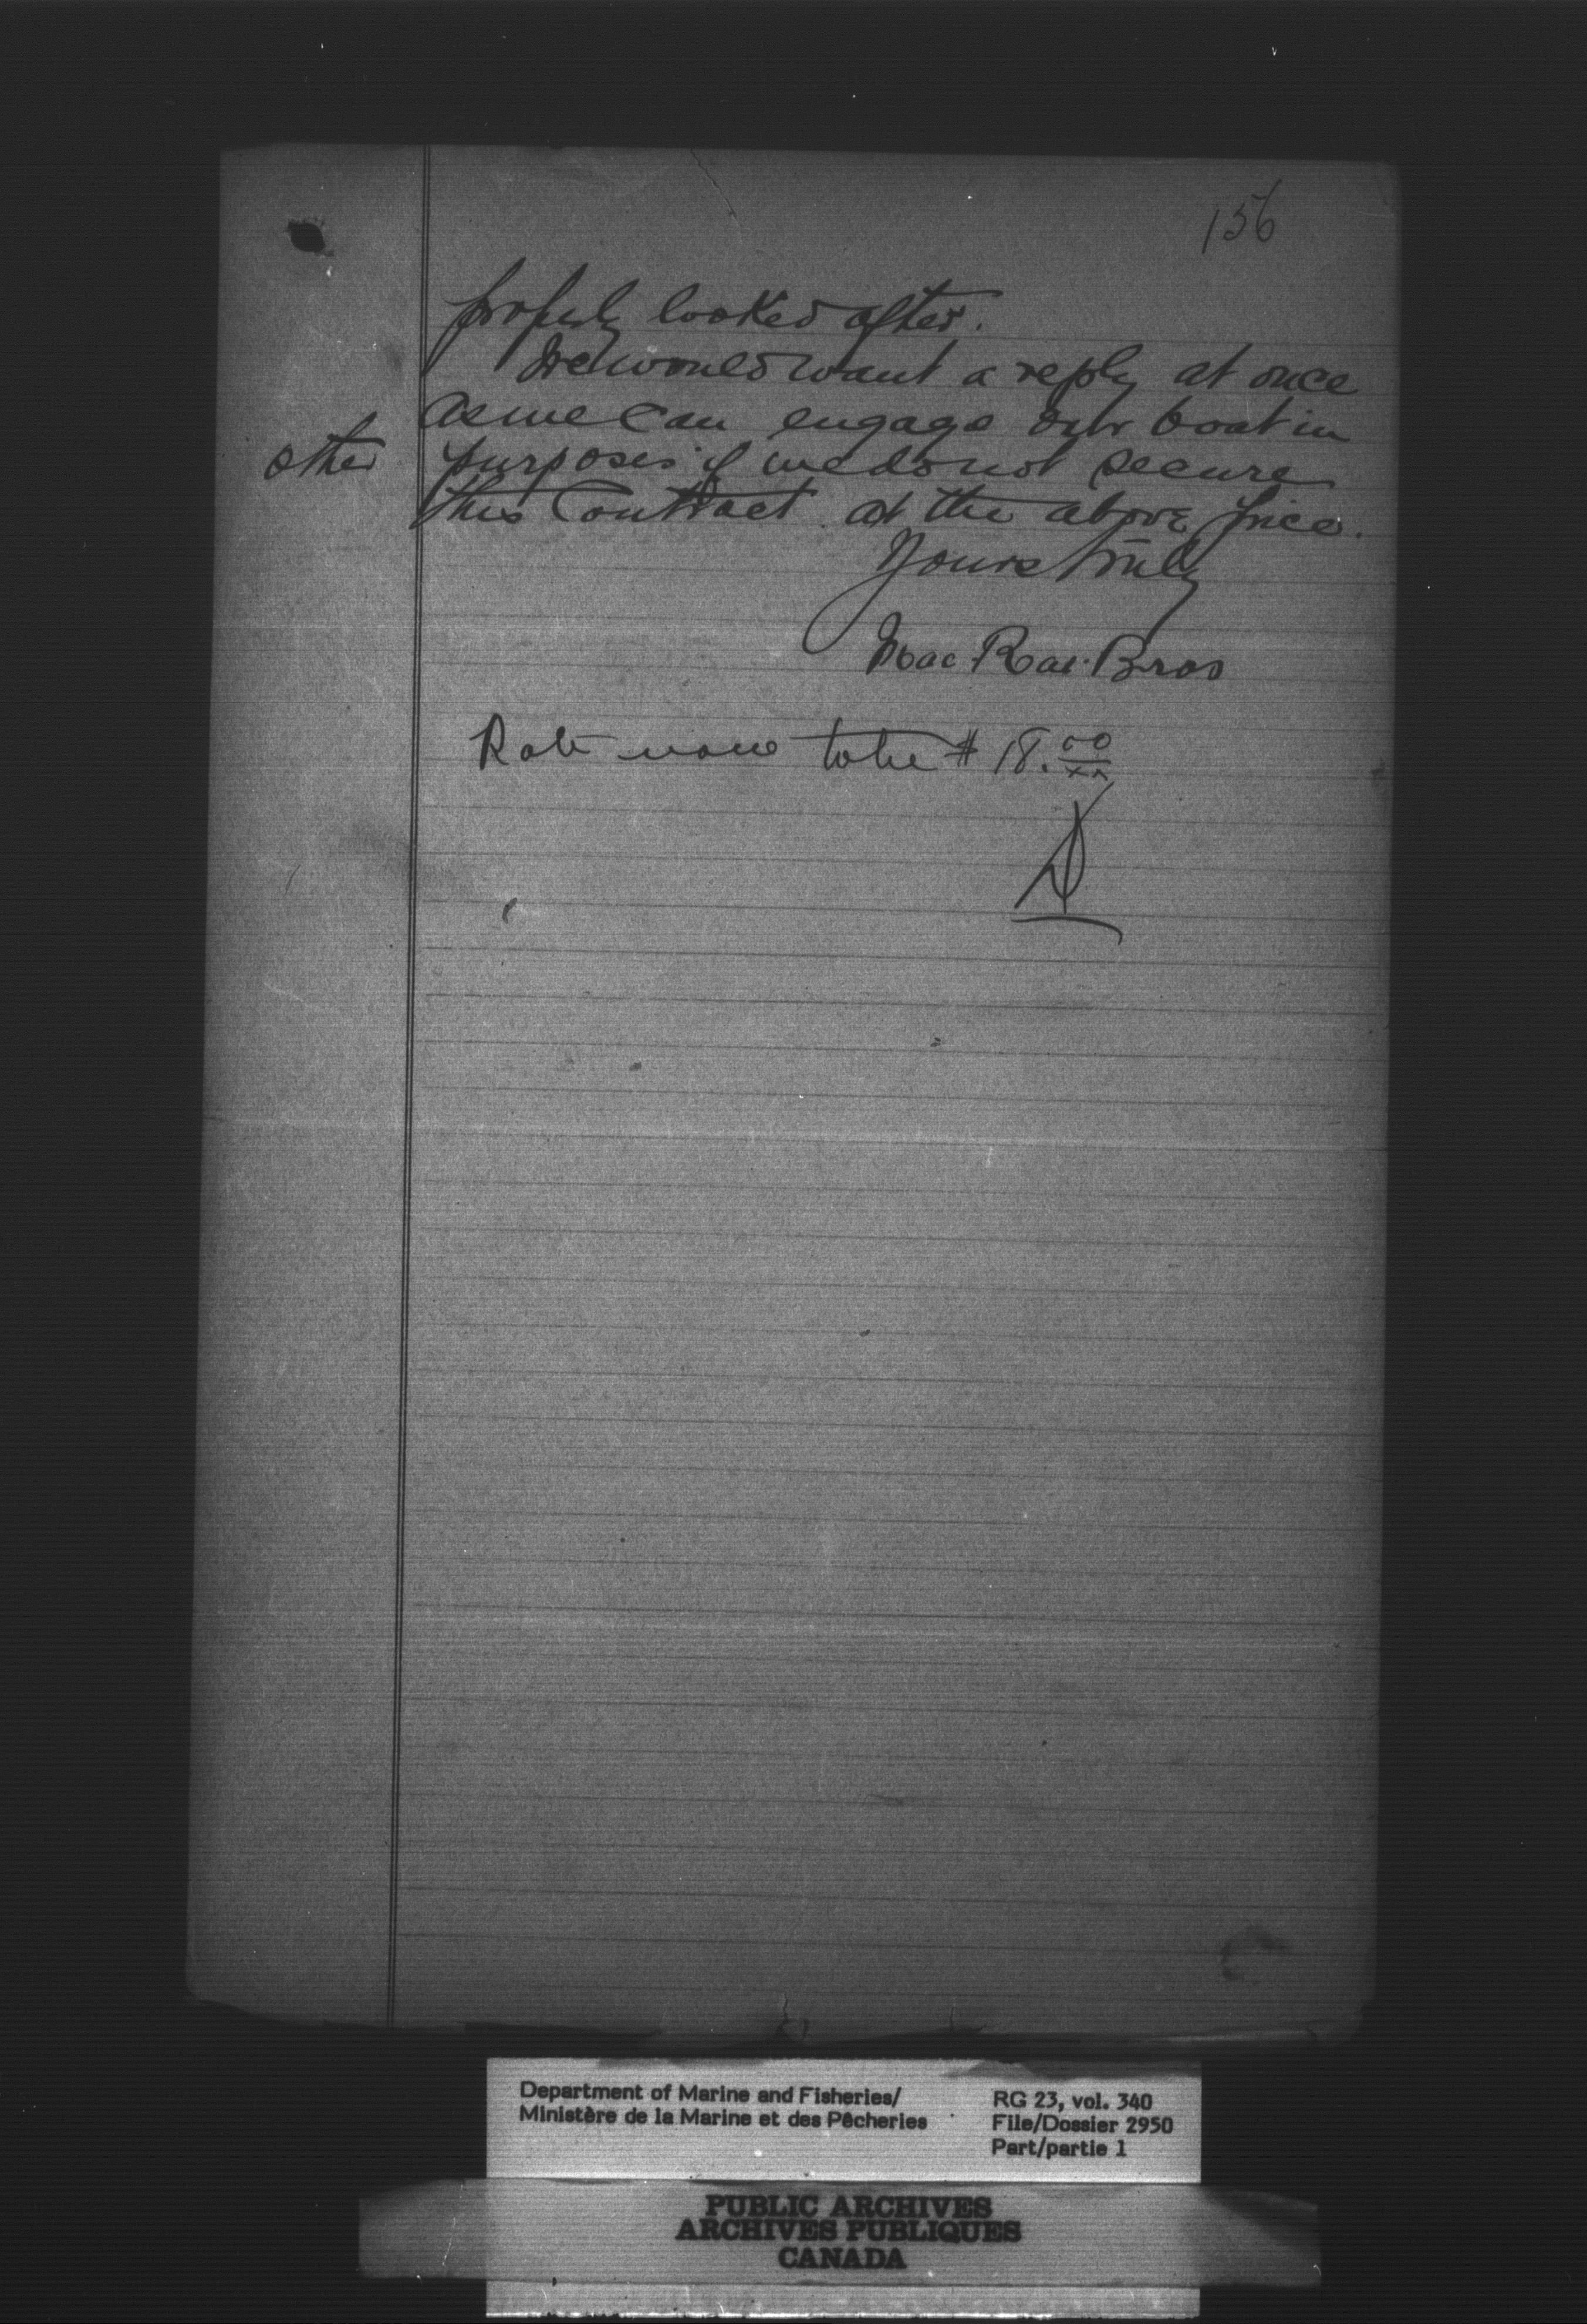 156
properly looked after.
We would want a reply at once
as we can engage our boat in
other purposes if we do not secure
this Contract at the above price.
Yours truly
Mac Rae Bros
Rate now to be $ 18.00/xx
Department of Marine and Fisheries/
Ministère de la Marine et des Pêcheries
RG 23, vol. 340
File/Dossier 2950
Part/partie 1
PUBLIC ARCHIVES
ARCHIVES PUBLIQUES
CANADA